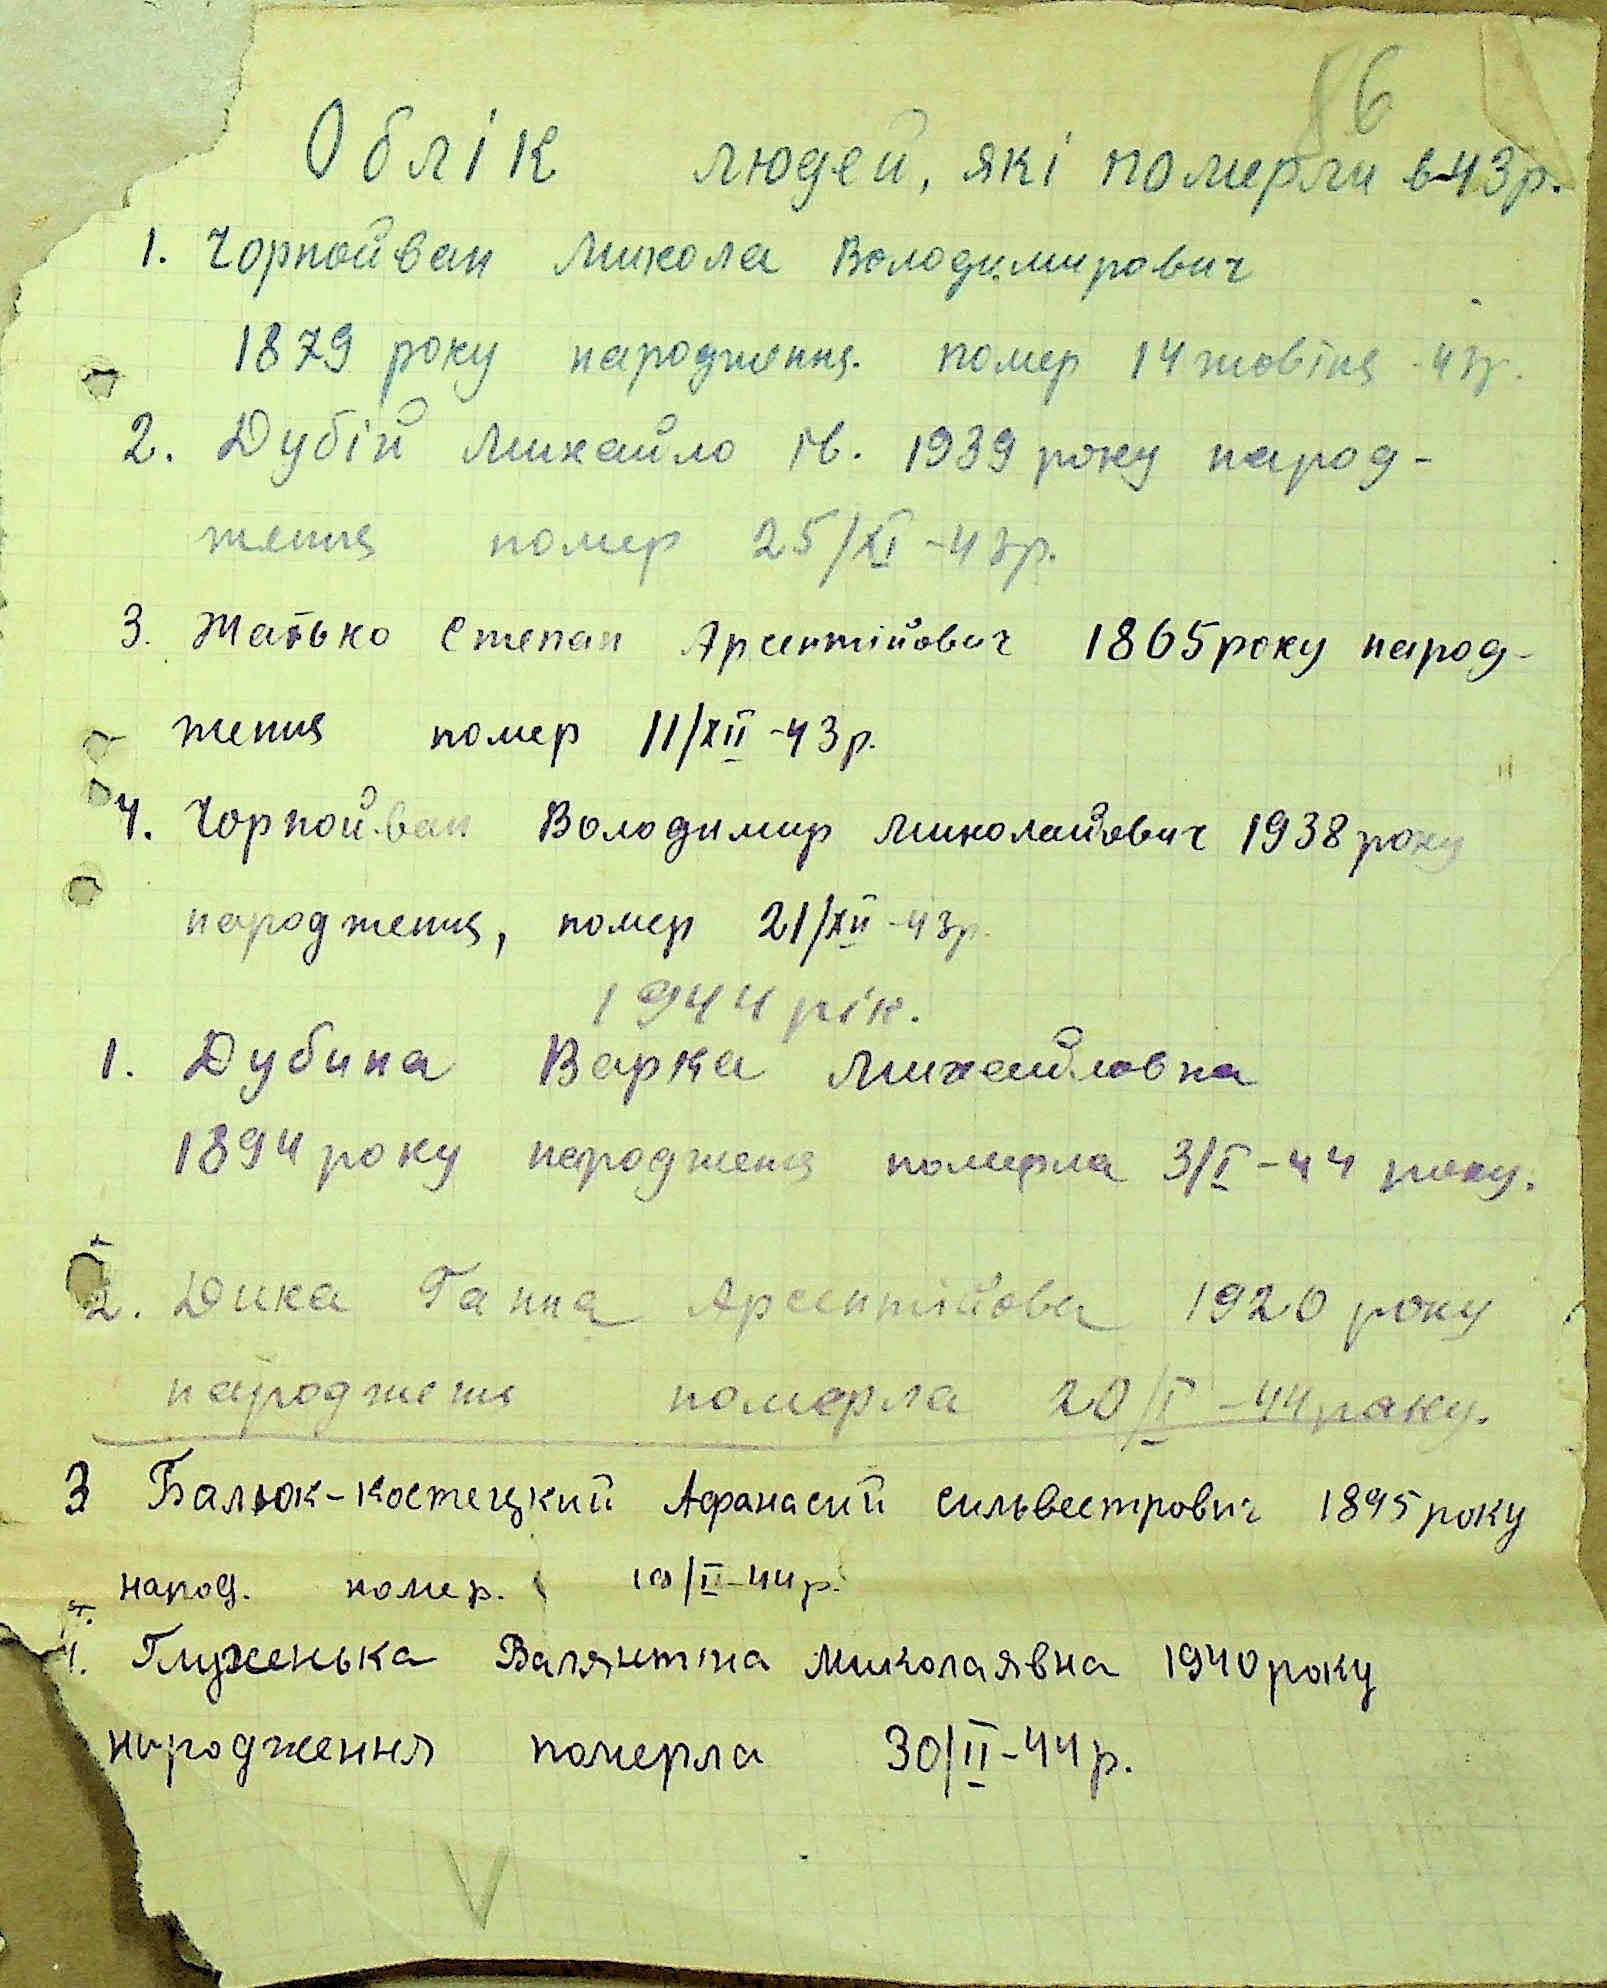 86
Облік людей, які померли в 43 р.
1. Чорпойван Микола Володимирович
1879 року народження. помер 14 жовтня -43р.
2. Дубій Михайло Ів. 1939 року народ-
ження помер 25/XI -43р.
3. Жатько Степан Арсентійович 1865 року народ-
ження помер 11/XII -43р.
4. Чорпойван Володимир Миколайович 1938 року
народження, помер 21/XII -43р.
1944 рік.
1. Дубина Варка Михайловна
1894 року народженя померла 3/I -44 року.
2. Дика Ганна Арсентійова 1920 року
народжень померла 20/I -44 року.
3 Балюк-Костецкий Афанасий Сильвестрович 1895 року
народ. помер. 10/II-44р.
4. Глуженька Валянтина Миколаявна 1940 року
народження померла 30/II-44р.